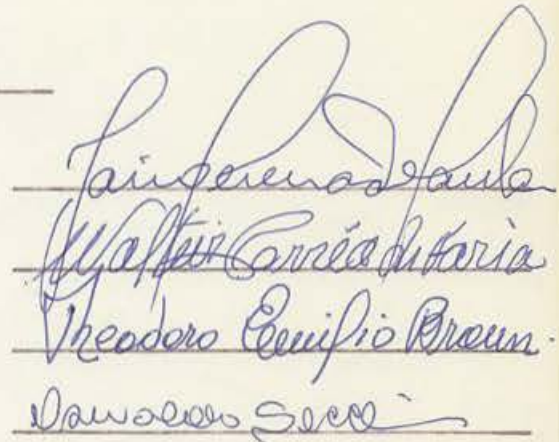 Jair Pereira de Paula
Walter Corrêa de Faria
Theodoro Emilio Braun.